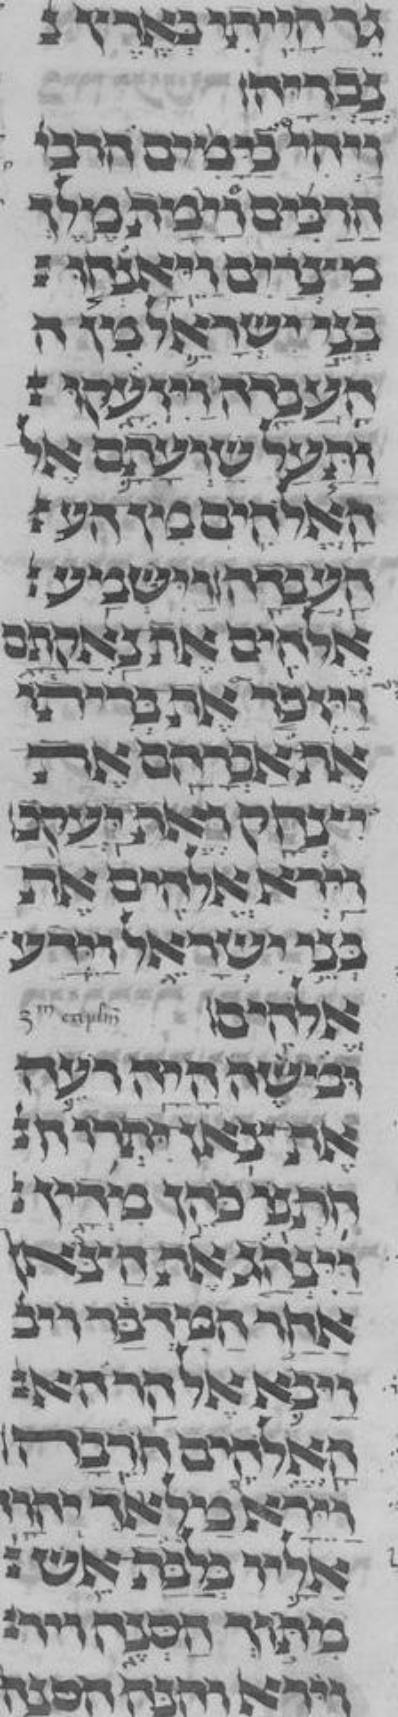 גר הייתי בארץ נ
נכריה
ויהי בימים הרבי
הרבים וימת מלך
מיצרים ויאנחו
בני ישראל מן ה
העברה ויזעקו
ותעל שועתם אל
האלהים מן הע
העברה וישמע
אלהים את נאקתם
ויזכר את בריתו
את אברהם את
יצחק ואת יעקב
וירא אלהים את
בני ישראל וידע
אלהים 3m caplm
ומשה היה רעה
את צאן יתרו ח
חתנו כהן מדין
וינהג את הצאן
אחר המידבר ויב
ויבא אל הר הא
האלהים חרבה
וירא מלאך יהוה
אליו בלבת אש
מתוך הסנה ויר
וירא והנה הסנה